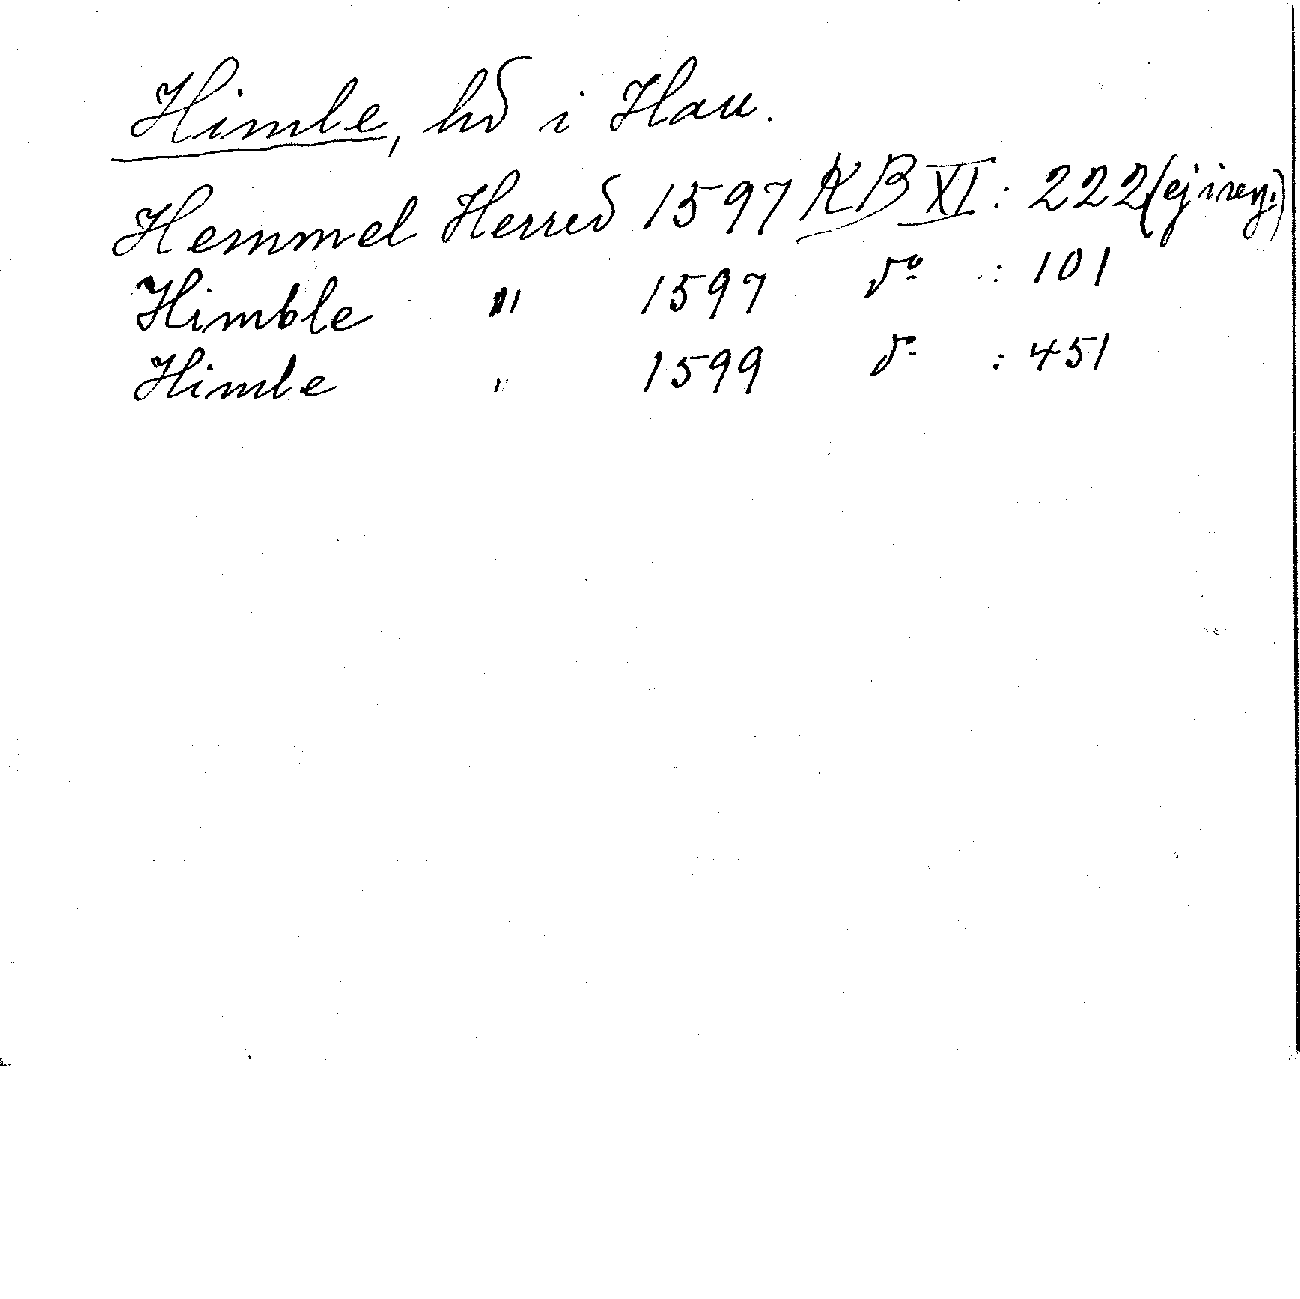 Himle, hd i Hall.
Hemmel Herred 1597 KB XI: 222 (ej i reg.)
Himble " 1597 do : 101
Himle " 1599 do : 451